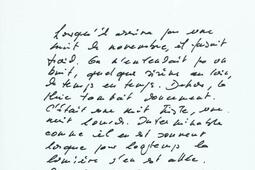 Lorsqu'il arriva par une
nuit de novembre, il faisait
froid. On n'entendait pas un
bruit, quelque sirène au loin,
de temps en temps. Dehors, la
pluie tombait doucement.
C'était une nuit triste, une
nuit lourde. Interminable
comme il en est souvent
lorsque par longtemps la
lumière s'en est allée.